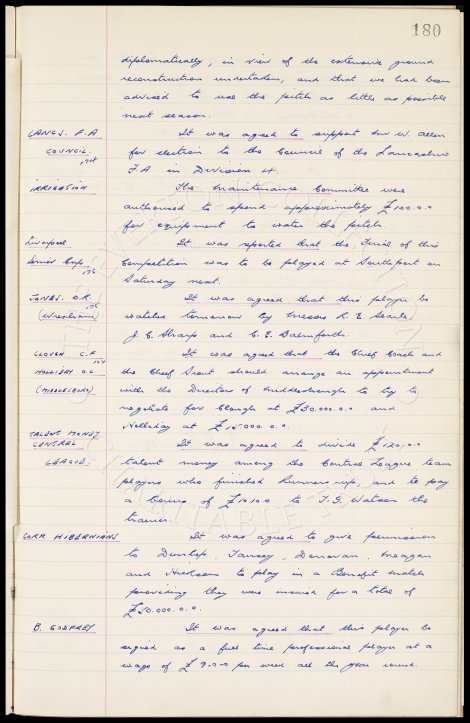 180
diplomatically, in view of the extensive ground
reconstruction undertaken, and that we had been
advised to use the pitch as little as possible
next season.
LANCS. F.A
COUNCIL.
It was agreed to support Mr W. Allen
for election to the Council of the Lancashire
F.A in Division 4.
IRRIGATION
The Maintenance Committee were
authorised to spend approximately £100.0.0
for equipment to water the pitch.
Liverpool
Senior Cup.
It was reported that the Final of this
Competition was to be played at Southport on
Saturday next.
JONES. D.R.
(Wrexham)
It was agreed that this player be
watched tomorrow by Messrs R. E. Searle,
J. C. Sharp and C. E. Balmforth.
CLOUGH C.F
HOLLIDAY O.L
(MIDDLESBORO)
It was agreed that the Chief Coach and
the Chief Scout should arrange an appointment
with the Directors of Middlesbrough to try to
negotiate for Clough at £30.000.0.0 and
Holliday at £15.000.0.0.
TALENT MONEY
CENTRAL
LEAGUE.
It was agreed to divide £120.0.0
talent money among the Central League team
players who finished runners-up, and to pay
a bonus of £10.10.0 to T.G. Watson the
trainer.
CORK HIBERNIANS
It was agreed to give permission
to Dunlop, Tansey, Donovan, Meagan
and Hickson to play in a Benefit match
providing they were insured for a total of
£50.000.0.0.
B. GODFREY
It was agreed that this player be
signed as a full time professional player at a
wage of £9.0.0 per week all the year round.